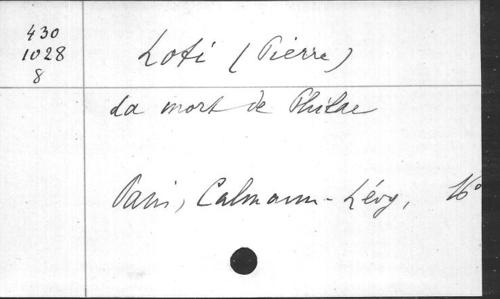 430
1028
8
Loti (Pierre)
La mort de Philae
Paris, Calmann-Lévy, 16°